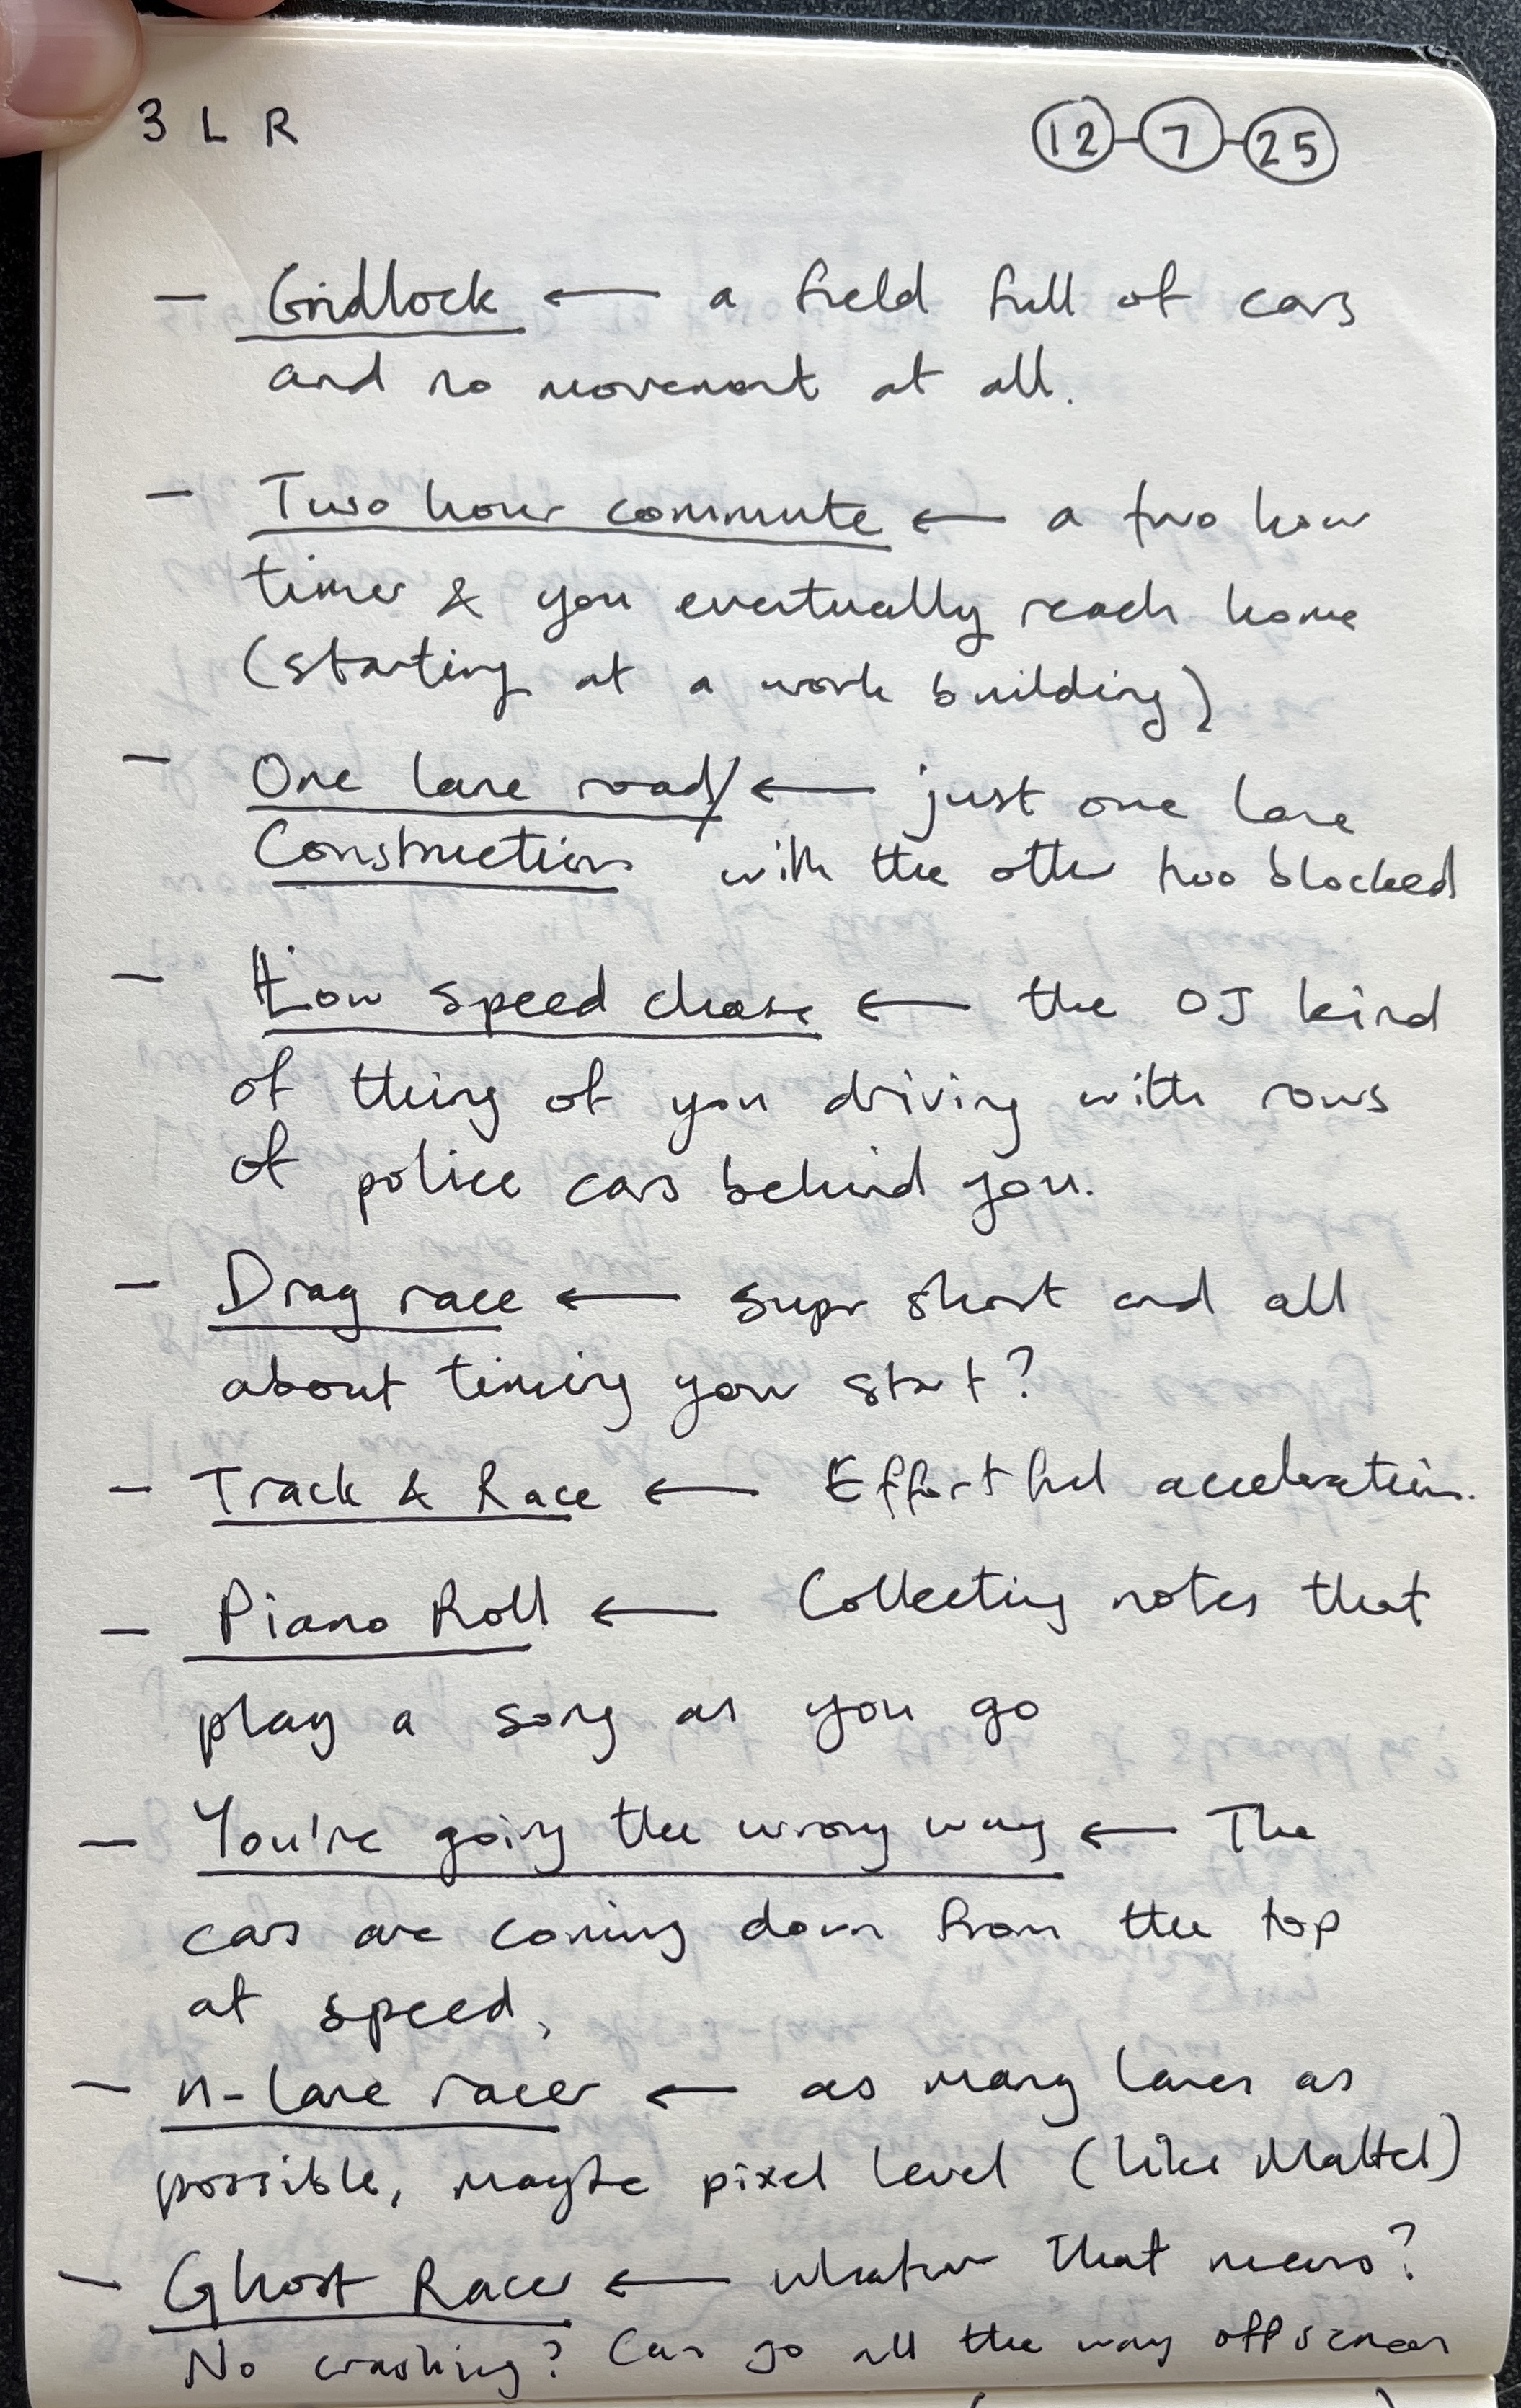 3 L R
12-7-25
- Gridlock ← a field full of cars
and no movement at all.
- Two hour commute ← a two hour
timer & you eventually reach home
(starting at a work building)
- One lane road/ ← just one lane
Construction with the other two blocked
- Low speed chase ← the OJ kind
of thing of you driving with rows
of police cars behind you.
- Drag race ← super short and all
about timing your start?
- Track & Race ← Effortful acceleration.
- Piano Roll ← Collecting notes that
play a song as you go
- You're going the wrong way ← The
cars are coming down from the top
at speed,
- n-lane racer ← as many lanes as
possible, maybe pixel level (like Mattel)
- Ghost Racer ← whatever that means?
No crashing? Can go all the way off screen